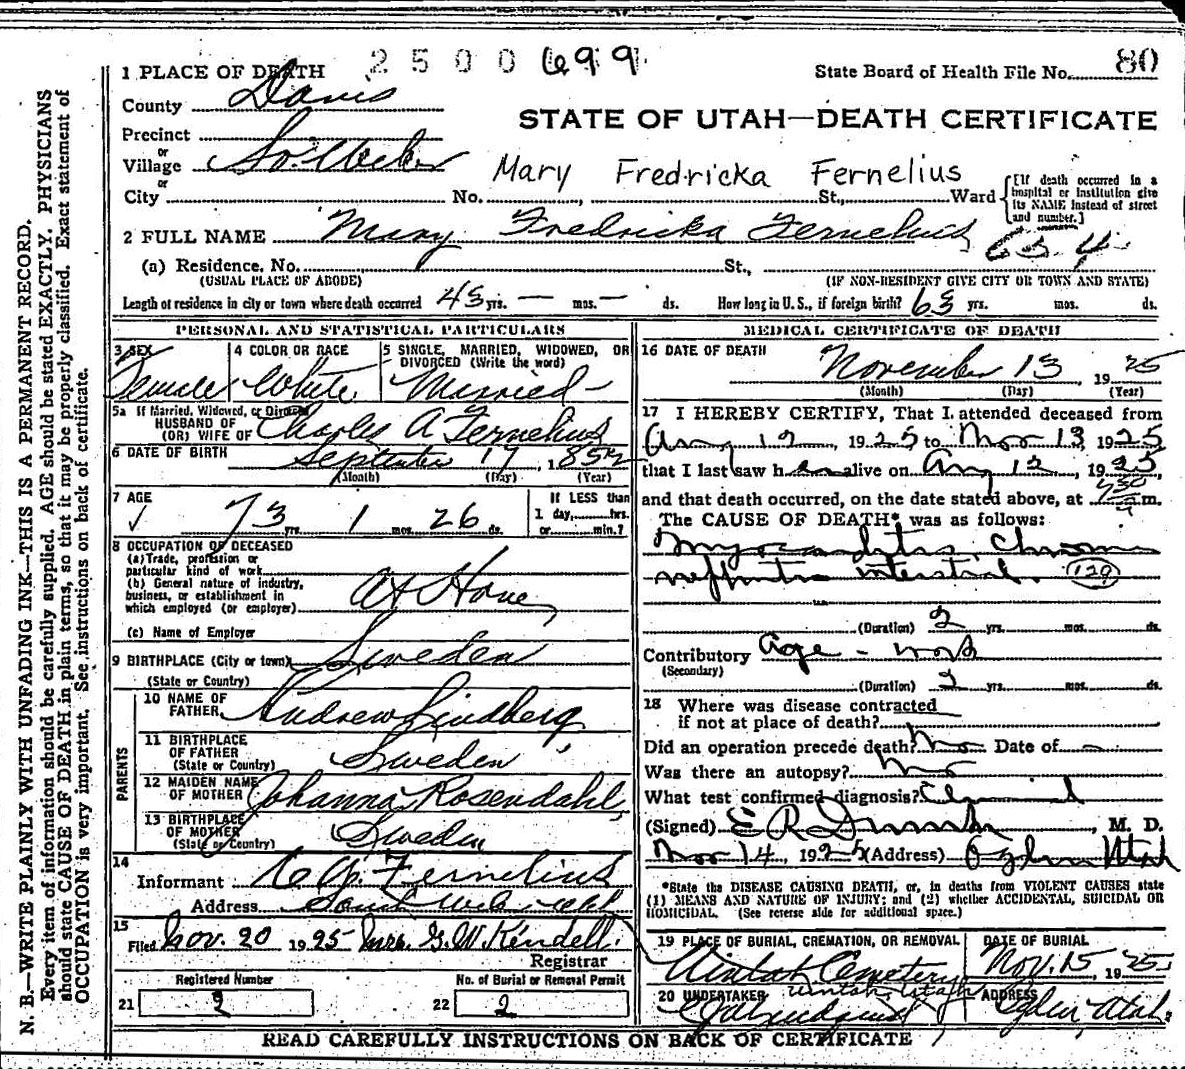 2 5 0 0 699
80
1 PLACE OF DEATH
State Board of Health File No.
County Davis
STATE OF UTAH—DEATH CERTIFICATE
Precinct
or
Village So. Weber
Mary Fredricka Fernelius
or
City No. St., Ward
[If death occurred in a hospital or institution give its NAME instead of street and number.]
2 FULL NAME Mary Fredricka Fernelius
(a) Residence. No. St.,
(USUAL PLACE OF ABODE) (IF NON-RESIDENT GIVE CITY OR TOWN AND STATE)
Length of residence in city or town where death occurred yrs. — mos. — ds. How long in U. S., if foreign birth? yrs. mos. ds.
PERSONAL AND STATISTICAL PARTICULARS
3 SEX Female
4 COLOR OR RACE White
5 SINGLE, MARRIED, WIDOWED, OR DIVORCED (Write the word) Married
5a If Married, Widowed, or Divorced
HUSBAND OF
(OR) WIFE OF Charles A Fernelius
6 DATE OF BIRTH September 17, 1852
(Month) (Day) (Year)
7 AGE 73 yrs. 1 mos. 26 ds.
If LESS than
1 day, hrs.
or min.?
8 OCCUPATION OF DECEASED
(a) Trade, profession or
particular kind of work
(b) General nature of industry,
business, or establishment in
which employed (or employer) At Home
(c) Name of Employer
9 BIRTHPLACE (City or town) Sweden
(State or Country)
PARENTS
10 NAME OF
FATHER Andrew Lindberg
11 BIRTHPLACE
OF FATHER Sweden
(State or Country)
12 MAIDEN NAME
OF MOTHER Johanna Rosendahl
13 BIRTHPLACE
OF MOTHER Sweden
(State or Country)
14
Informant C. A. Fernelius
Address South Weber Utah
15
Filed Nov. 20 1925 Mrs. G. W. Kendell
Registrar
Registered Number
21 2
No. of Burial or Removal Permit
22 2
MEDICAL CERTIFICATE OF DEATH
16 DATE OF DEATH November 13, 1925
(Month) (Day) (Year)
17 I HEREBY CERTIFY, That I attended deceased from
Aug 12, 1925 to Nov 13, 1925
that I last saw her alive on Aug 12, 1925
and that death occurred, on the date stated above, at 730 m.
The CAUSE OF DEATH* was as follows:
Myocarditis, Chronic
nephritis interstitial. 129
(Duration) 2 yrs. mos. ds.
Contributory Age - work
(Secondary)
(Duration) 2 yrs. mos. ds.
18 Where was disease contracted
if not at place of death?
Did an operation precede death? No Date of
Was there an autopsy? No
What test confirmed diagnosis? Clinical
(Signed) E R , M. D.
Nov 14, 1925 (Address) Ogden Utah
*State the DISEASE CAUSING DEATH, or, in deaths from VIOLENT CAUSES state
(1) MEANS AND NATURE OF INJURY; and (2) whether ACCIDENTAL, SUICIDAL OR
HOMICIDAL. (See reverse side for additional space.)
19 PLACE OF BURIAL, CREMATION, OR REMOVAL
Uintah Cemetery
Uintah, Utah
DATE OF BURIAL
Nov. 15, 1925
20 UNDERTAKER
ADDRESS
Ogden, Utah.
READ CAREFULLY INSTRUCTIONS ON BACK OF CERTIFICATE
N. B.—WRITE PLAINLY WITH UNFADING INK—THIS IS A PERMANENT RECORD.
Every item of information should be carefully supplied. AGE should be stated EXACTLY. PHYSICIANS
should state CAUSE OF DEATH in plain terms, so that it may be properly classified. Exact statement of
OCCUPATION is very important. See instructions on back of certificate.